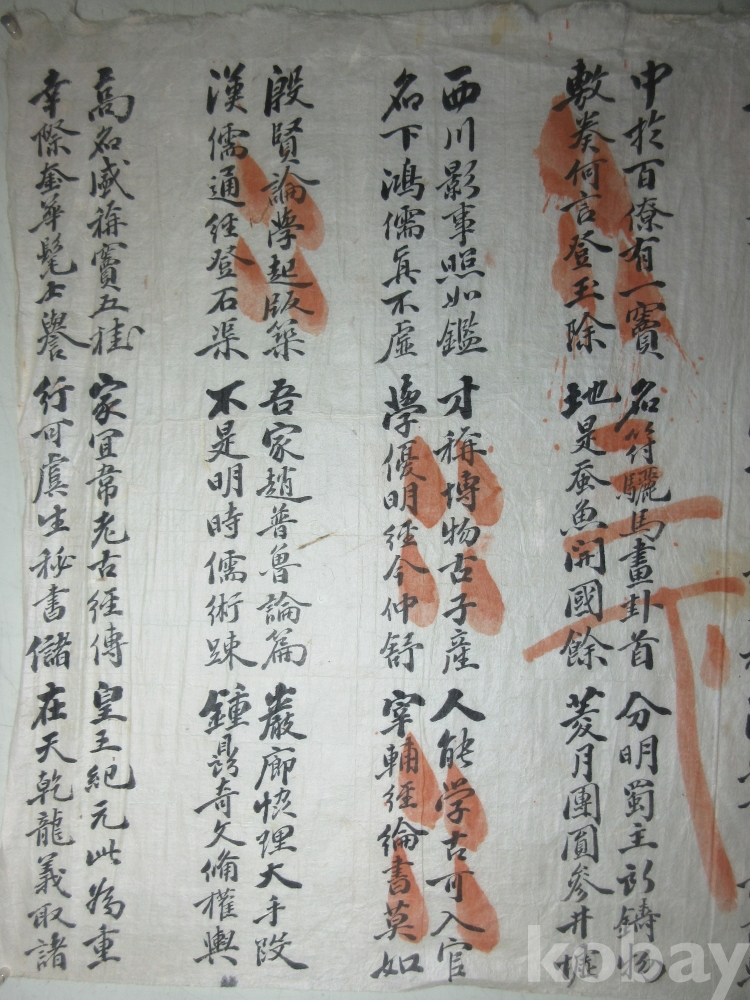 中於百僚有一寶
敷奏何言登玉除
名符驪馬畫卦首
地是蚕魚開國餘
分明蜀主所鑄物
菱月團圓參井墟
西川影事照如鑑
名下鴻儒眞不虛
才稱博物古子產
學優明經今仲舒
人能学古可入官
宰輔經綸書莫如
殷賢論學起版築
漢儒通經登石渠
吾家趙普魯論篇
不是明時儒術踈
巖廊燮理大手段
鍾鼎奇文備權輿
高名盛稱竇五桂
幸際奎華髦士譽
家冝韋老古經傳
行可虞生秘書儲
皇王紀元此為重
在天乾龍義取諸
kobay